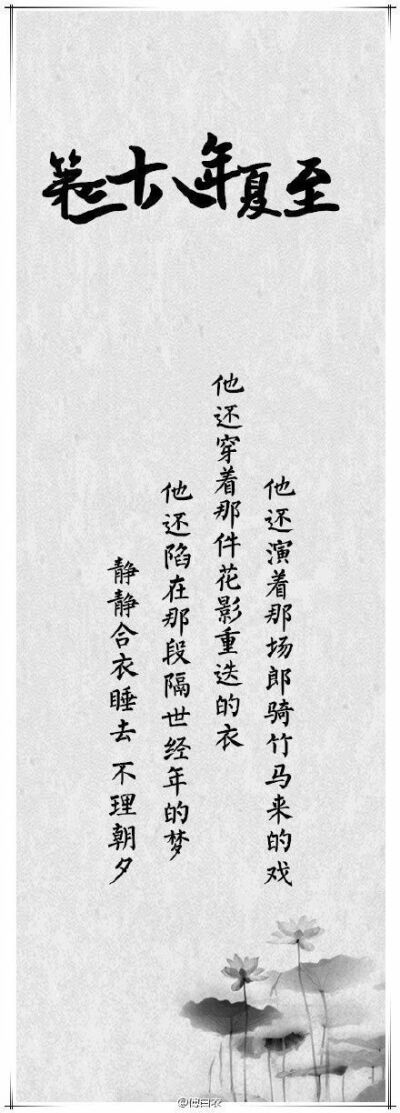 第三十八年夏至
他还演着那场郎骑竹马来的戏
他还穿着那件花影重迭的衣
他还陷在那段隔世经年的梦
静静合衣睡去 不理朝夕